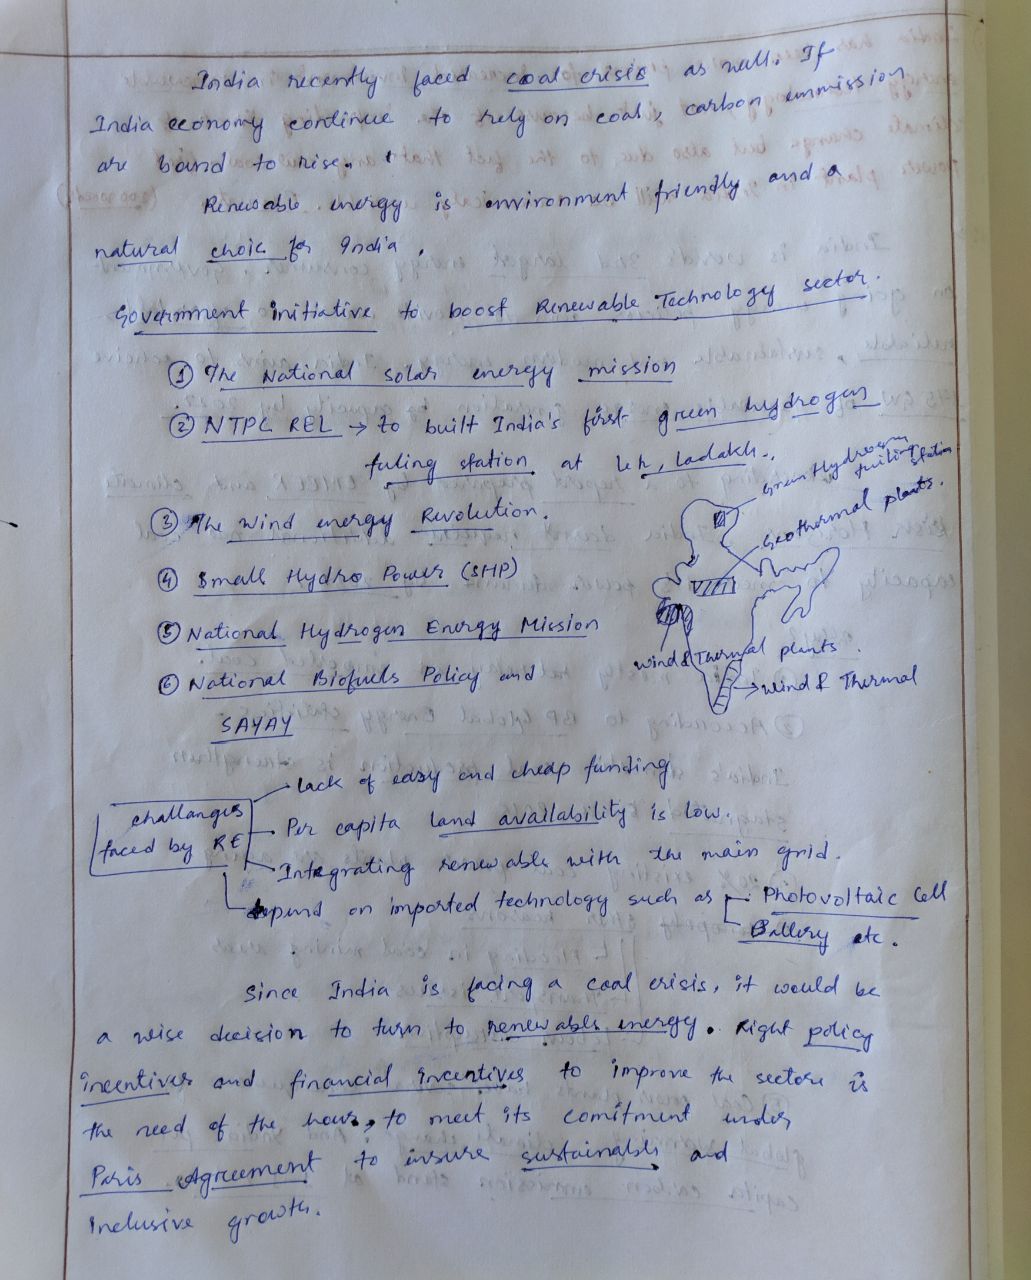 India recently faced coal crisis as well. If
India economy continue to rely on coal, carbon emmission
are bound to rise.
Renewable energy is environment friendly and a
natural choic for India.
Government initiative to boost Renewable Technology sector.
① The National solar energy mission
② NTPC REL → to built India's first green hydrogen
fuling station at leh, ladakh.
Green Hydrogen
fuiling station
③ The wind energy Revolution.
Geothermal plants.
④ Small Hydro Power (SHP)
⑤ National Hydrogen Energy Mission
wind & Thermal plants.
⑥ National Biofuels Policy and
→ wind & Thermal
SAYAY
challanges
faced by RE
lack of easy and cheap funding
Per capita land availability is low.
Integrating renewable with the main grid.
depend on imported technology such as
Photovoltaic Cell
Battery etc.
Since India is facing a coal crisis, it would be
a wise decision to turn to renewable energy. Right policy
incentives and financial incentives to improve the sectors is
the need of the hour, to meet its comitment under
Paris Agreement to insure sustainable and
Inclusive growth.